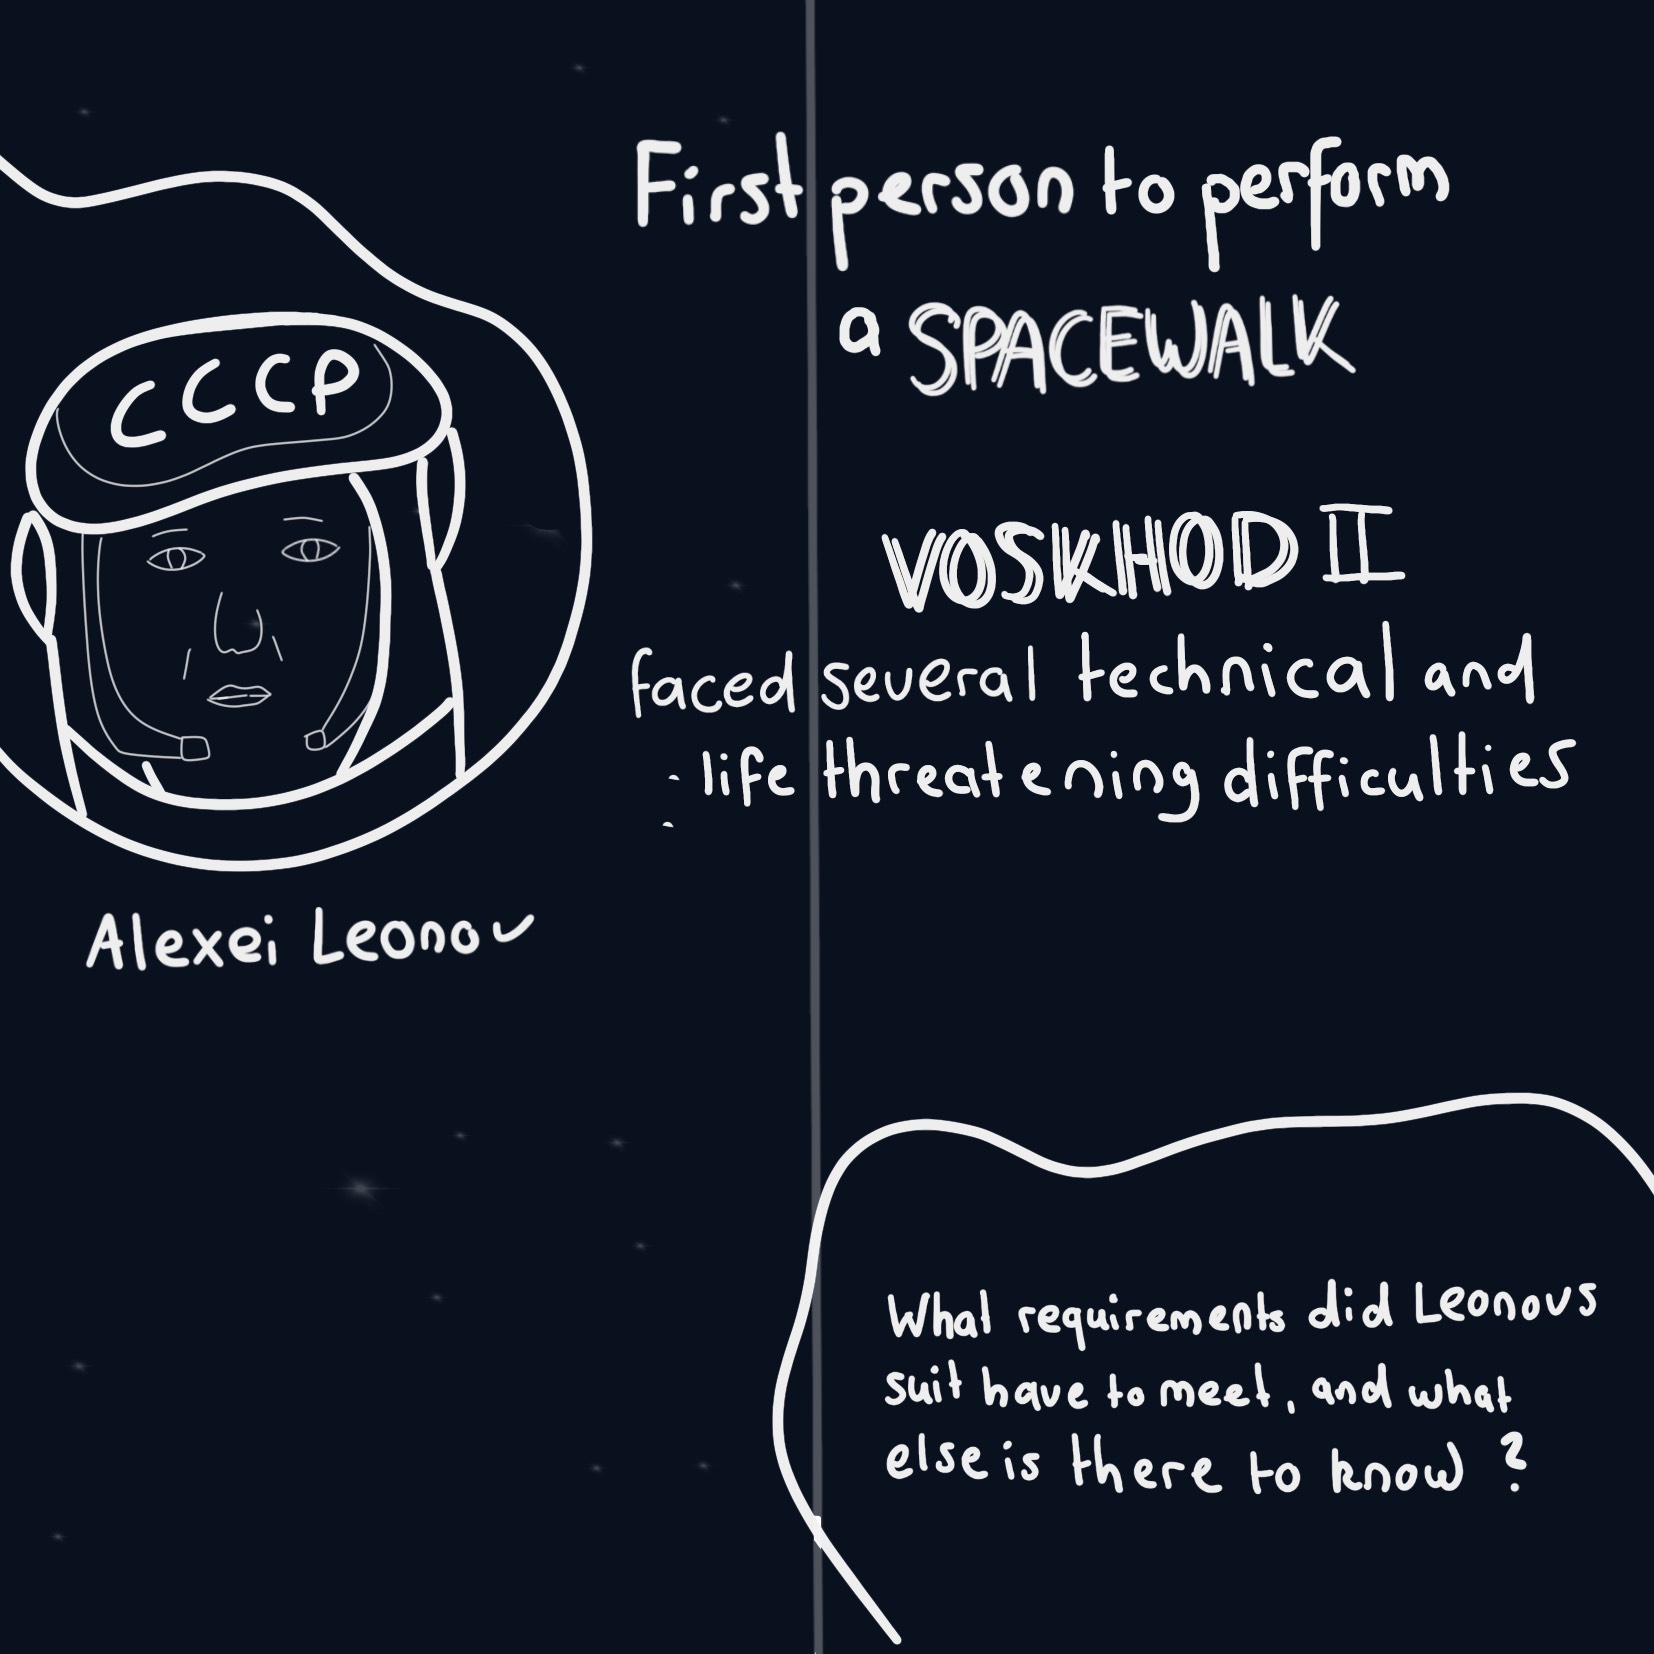 First person to perform
a SPACEWALK
CCCP
VOSKHOD II
faced several technical and
life threatening difficulties
Alexei Leonov
What requirements did Leonovs
suit have to meet, and what
else is there to know ?